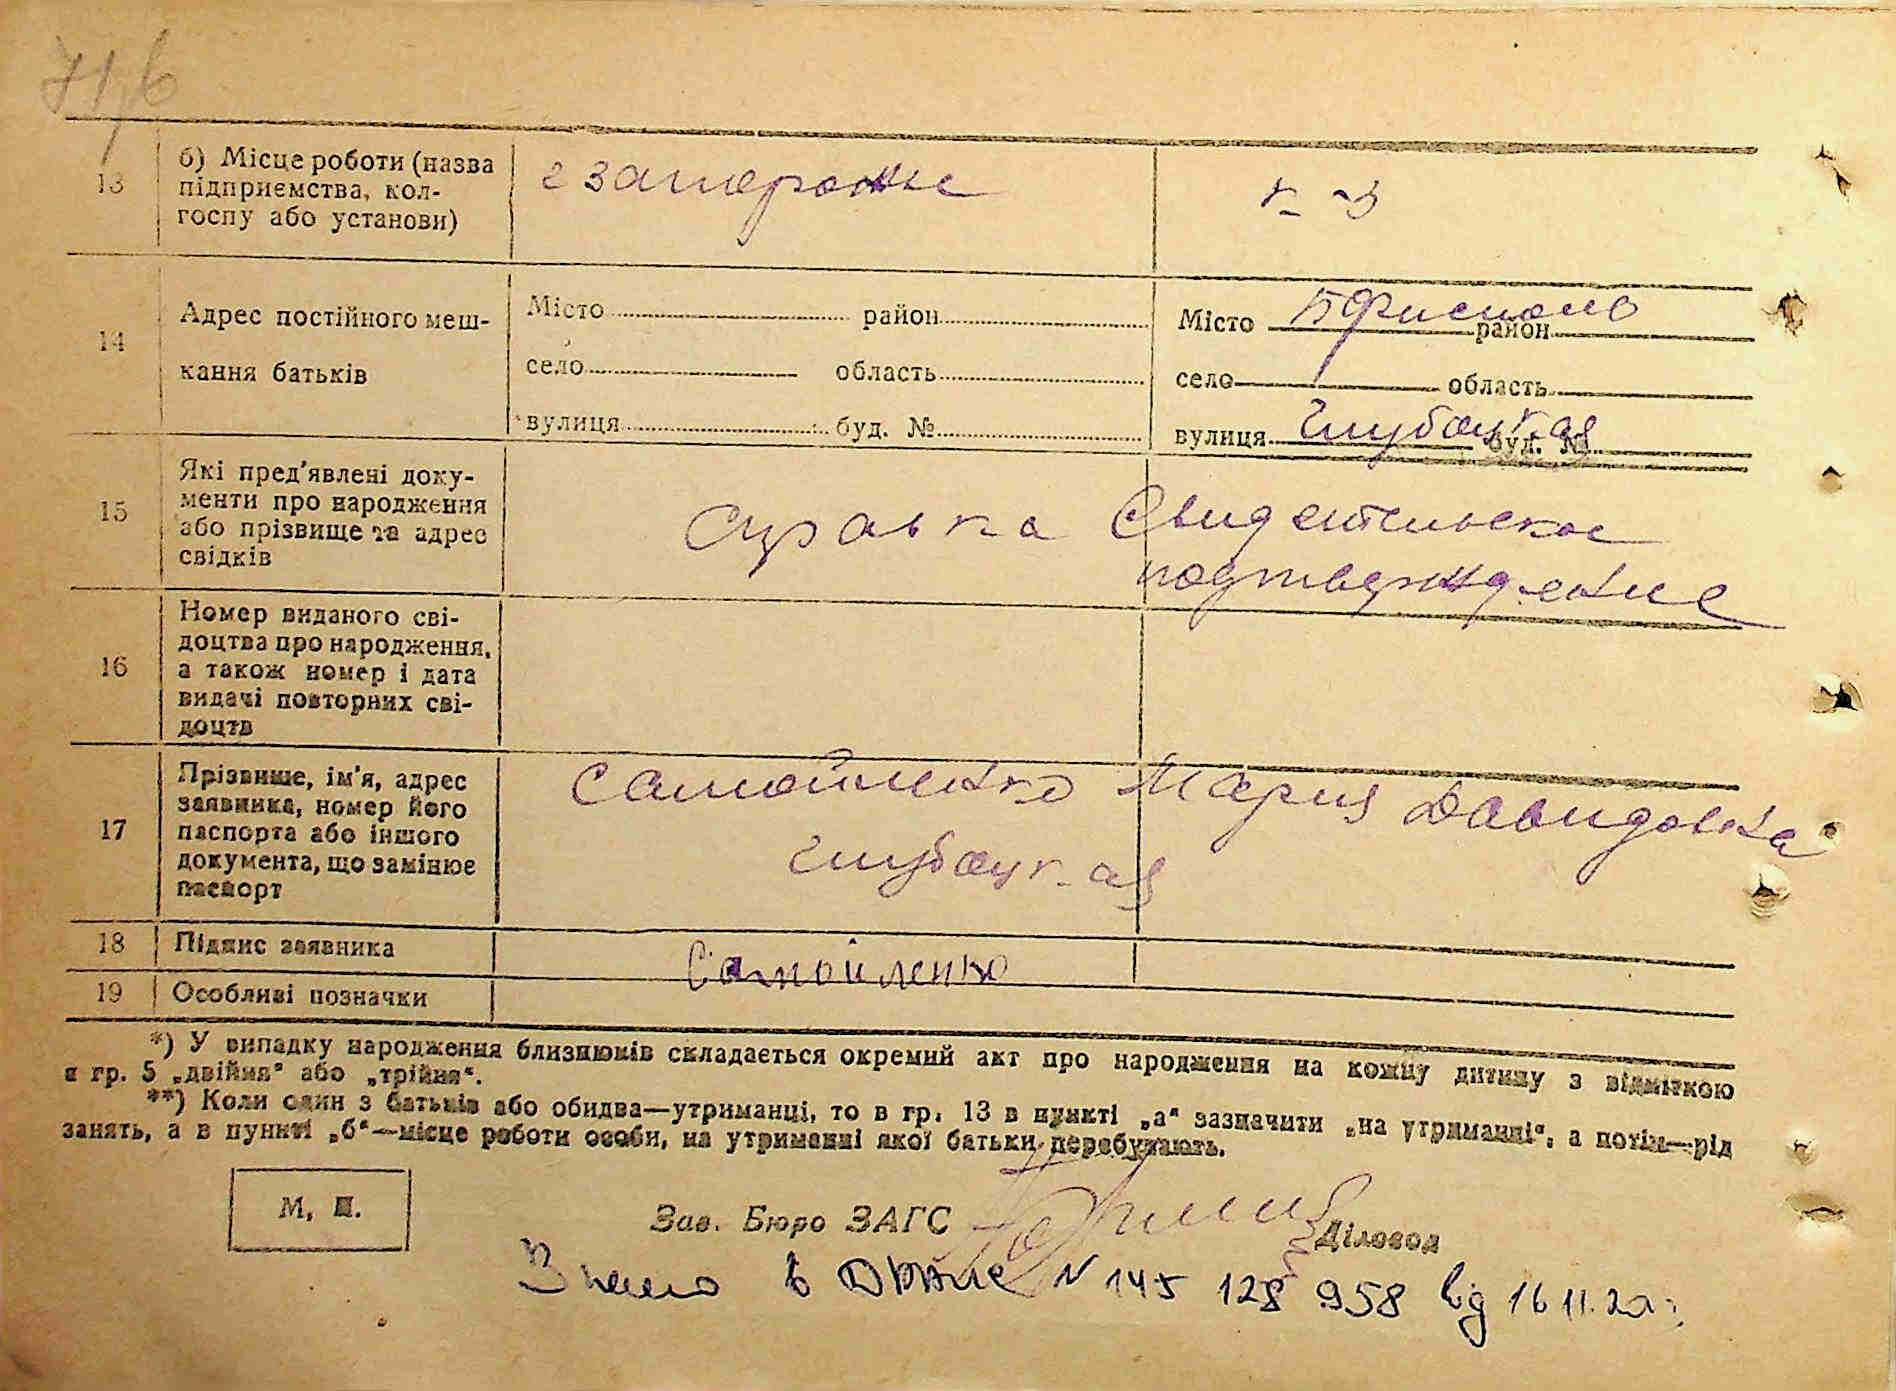 71,в
13 б) Місце роботи (назва підприємства, колгоспу або установи) г Запорожье к-з
14 Адрес постійного мешкання батьків
Місто район Місто Борисполь район
село область село область
вулиця буд. № вулиця Глубоцкая буд. №
15 Які пред'явлені документи про народження або прізвище та адрес свідків
Справка Свидетельское
подтверждение
16 Номер виданого свідоцтва про народження, а також номер і дата видачі повторних свідоцтв
17 Прізвище, ім'я, адрес заявника, номер його паспорта або іншого документа, що замінює паспорт
Самойленко Мария Давидовна
Глубоцкая
18 Підпис заявника Самойленко
19 Особливі позначки
*) У випадку народження близнюків складається окремий акт про народження на кожну дитину з відміткою
в гр. 5 „двійня" або „трійня".
**) Коли один з батьків або обидва—утриманці, то в гр. 13 в пункті „а" зазначити „на утриманні", а потім—рід
занять, а в пункті „б"—місце роботи особи, на утриманні якої батьки перебувають.
М. П.
Зав. Бюро ЗАГС Діловод
Внесено в ДРАЦС N 145 128 958 від 16.11.20